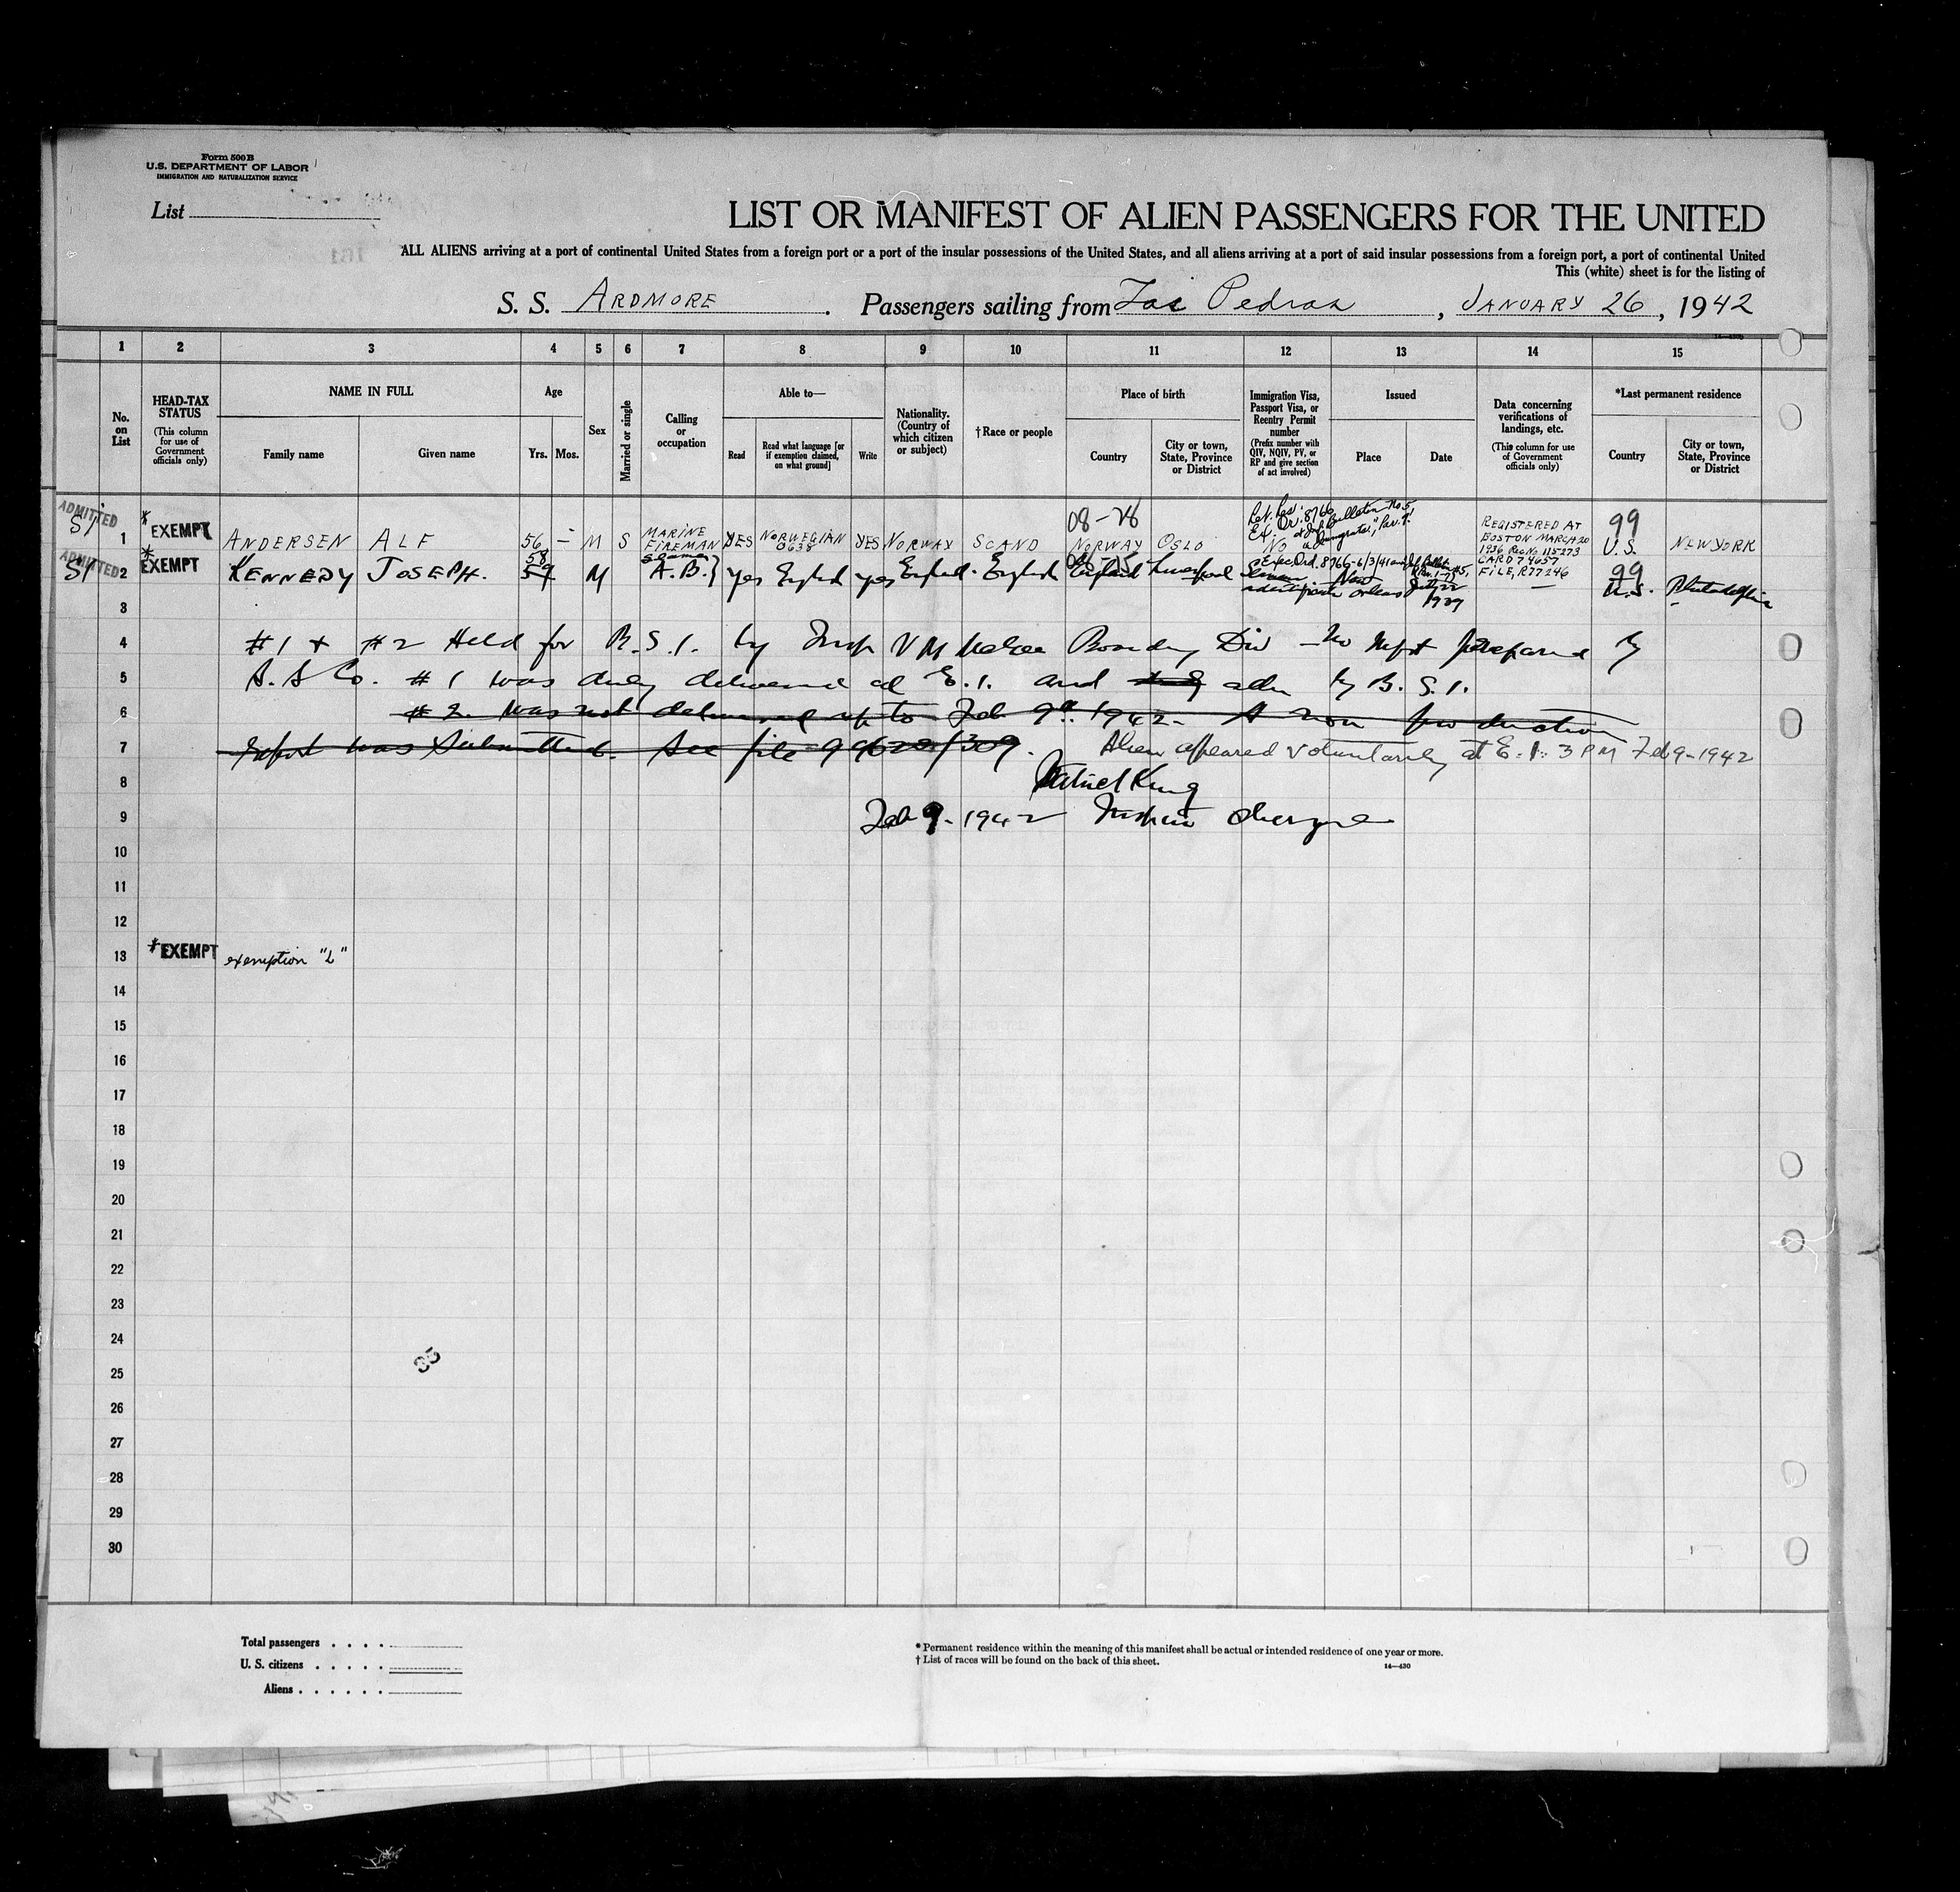 Form 500 B
U. S. DEPARTMENT OF LABOR
IMMIGRATION AND NATURALIZATION SERVICE
List
LIST OR MANIFEST OF ALIEN PASSENGERS FOR THE UNITED
ALL ALIENS arriving at a port of continental United States from a foreign port or a port of the insular possessions of the United States, and all aliens arriving at a port of said insular possessions from a foreign port, a port of continental United
This (white) sheet is for the listing of
S. S. ARDMORE . Passengers sailing from Pedras , JANUARY 26 , 1942
1 2 3 4 5 6 7 8 9 10 11 12 13 14 15
No. on List
HEAD-TAX STATUS
(This column for use of Government officials only)
NAME IN FULL
Family name
Given name
Age
Yrs.
Mos.
Sex
Married or single
Calling or occupation
Able to—
Read
Read what language [or if exemption claimed, on what ground]
Write
Nationality. (Country of which citizen or subject)
† Race or people
Place of birth
Country
City or town, State, Province or District
Immigration Visa, Passport Visa, or Reentry Permit number
(Prefix number with QIV, NQIV, PV, or RP and give section of act involved)
Issued
Place
Date
Data concerning verifications of landings, etc.
(This column for use of Government officials only)
*Last permanent residence
Country
City or town, State, Province or District
ADMITTED SI 1 * EXEMPT ANDERSEN ALF 56 – M S MARINE FIREMAN YES NORWEGIAN 0638 YES NORWAY SCAND 08-28 NORWAY OSLO Ex. Or. 8766 Bulletin No. 5, NO REGISTERED AT BOSTON MARCH 20 1936 REG NO. 115273 CARD 74657 FILE, R77246 99 U.S. NEW YORK
ADMITTED SI 2 * EXEMPT KENNEDY JOSEPH. 58 59 M seaman A.B.} yes English yes England. English England Liverpool Exec. Ord. 8766-6/3/41 and New Orleans July 22 1929 — 99 U.S. Philadelphia
3
4 #1 + #2 Held for B.S.I. by Insp V M McGee Boarding Div — no mfst prepared by
5 S.S Co. #1 was duly delivered at E.I. and adm by B.S.I.
6 #2 was not delivered up to Feb 9th 1942 - A non production
7 report was submitted. See file 99620/309. Alien appeared voluntarily at E.I. 3 PM Feb 9-1942
8 King
9 Feb 9-1942
10
11
12
13 * EXEMPT exemption "L"
14
15
16
17
18
19
20
21
22
23
24
25
26
27
28
29
30
Total passengers . . . .
U. S. citizens . . . . .
Aliens . . . . . .
* Permanent residence within the meaning of this manifest shall be actual or intended residence of one year or more.
† List of races will be found on the back of this sheet.
14—430